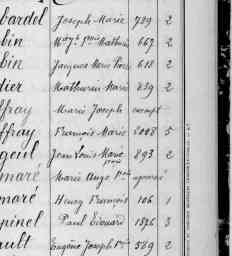 bardel Joseph Marie 789 2
bin Mathurin 667 2
bin Jacques Marie 618 2
dier Mathurin Marie 839 2
ffray Marie Joseph exempt
ffray François Marie 2008 5
geul Jean Louis Marie 893 2
maré Marie Ange ajourné
maré Henry François 106 1
pinel Paul Edouard 1826 3
ault Eugène Joseph 589 2